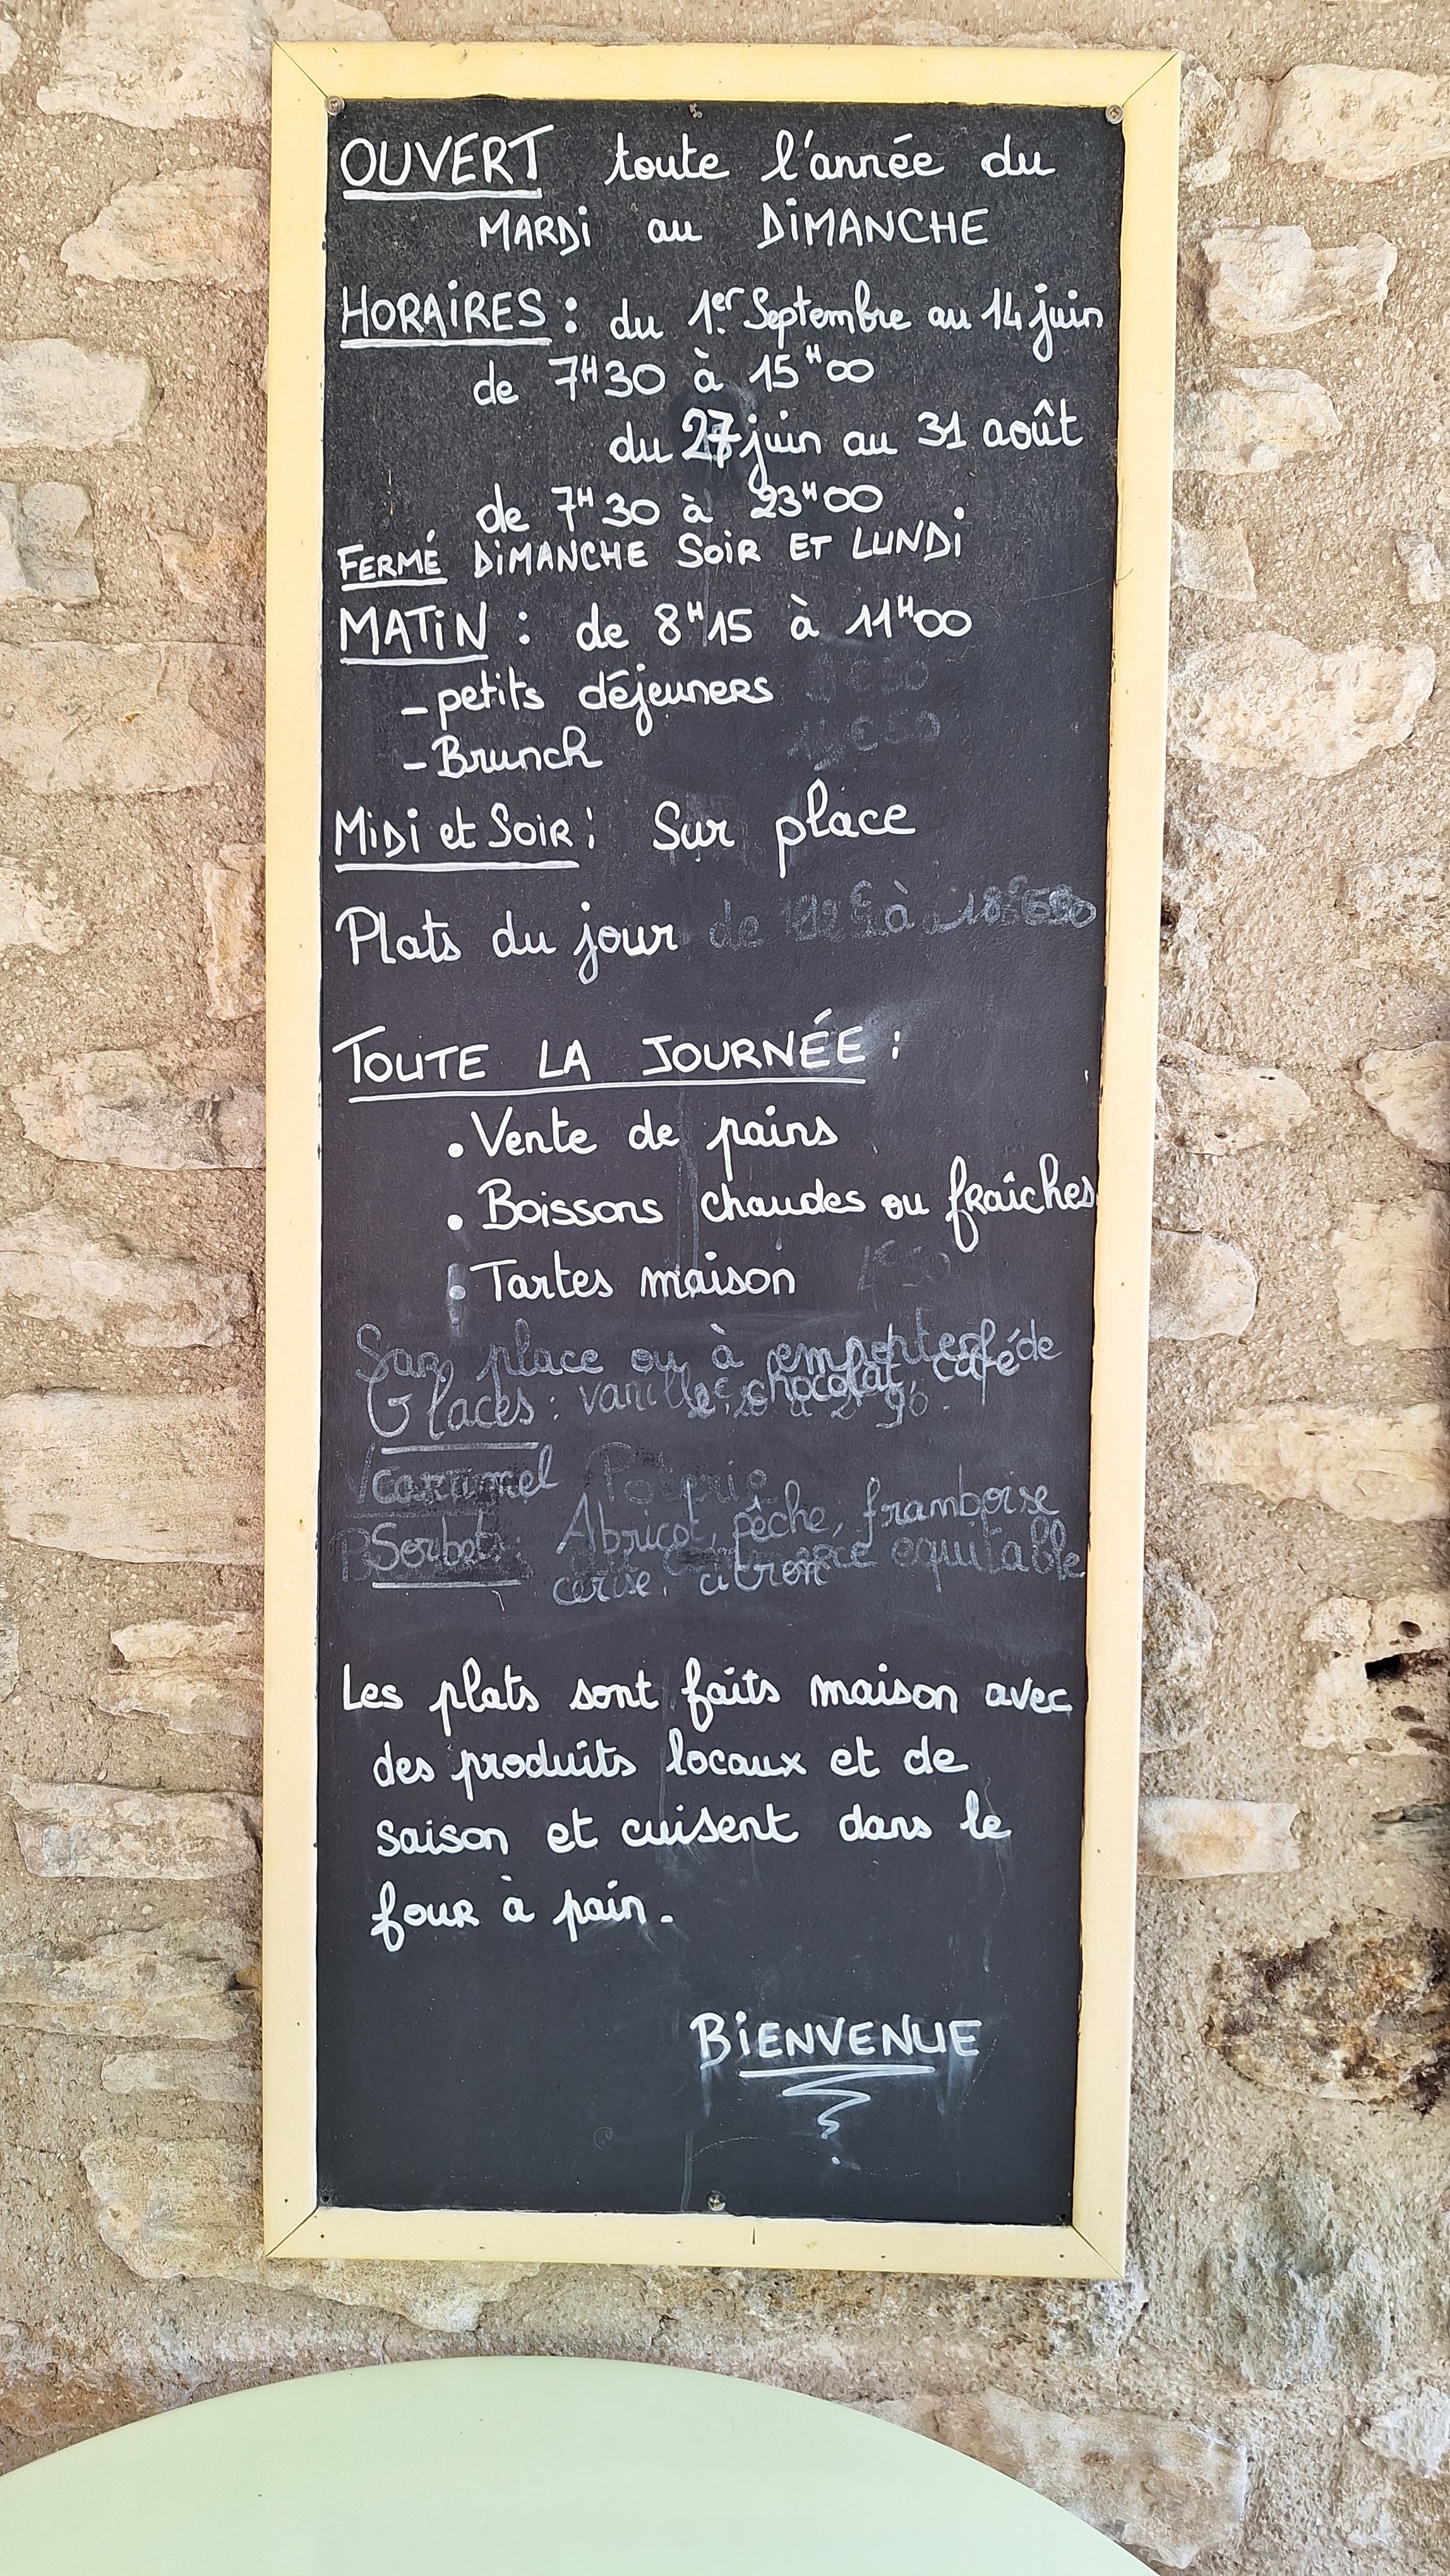 OUVERT toute l'année du
MARDi au DiMANCHE
HORAiRES : du 1er Septembre au 14 juin
de 7H30 à 15H00
du 27 juin au 31 août
de 7H30 à 23H00
FERMÉ DiMANCHE SOiR ET LUNDi
MATiN : de 8H15 à 11H00
- petits déjeuners
- Brunch
MiDi et SOiR : Sur place
Plats du jour de à
TOUTE LA JOURNÉE :
. Vente de pains
. Boissons chaudes ou fraîches
. Tartes maison
Sur place ou à emporter de
Glaces : vanille, chocolat, café
caramel
Sorbets : Abricot, pêche, framboise
équitable
cerise, citron
Les plats sont faits maison avec
des produits locaux et de
saison et cuisent dans le
four à pain.
BiENVENUE